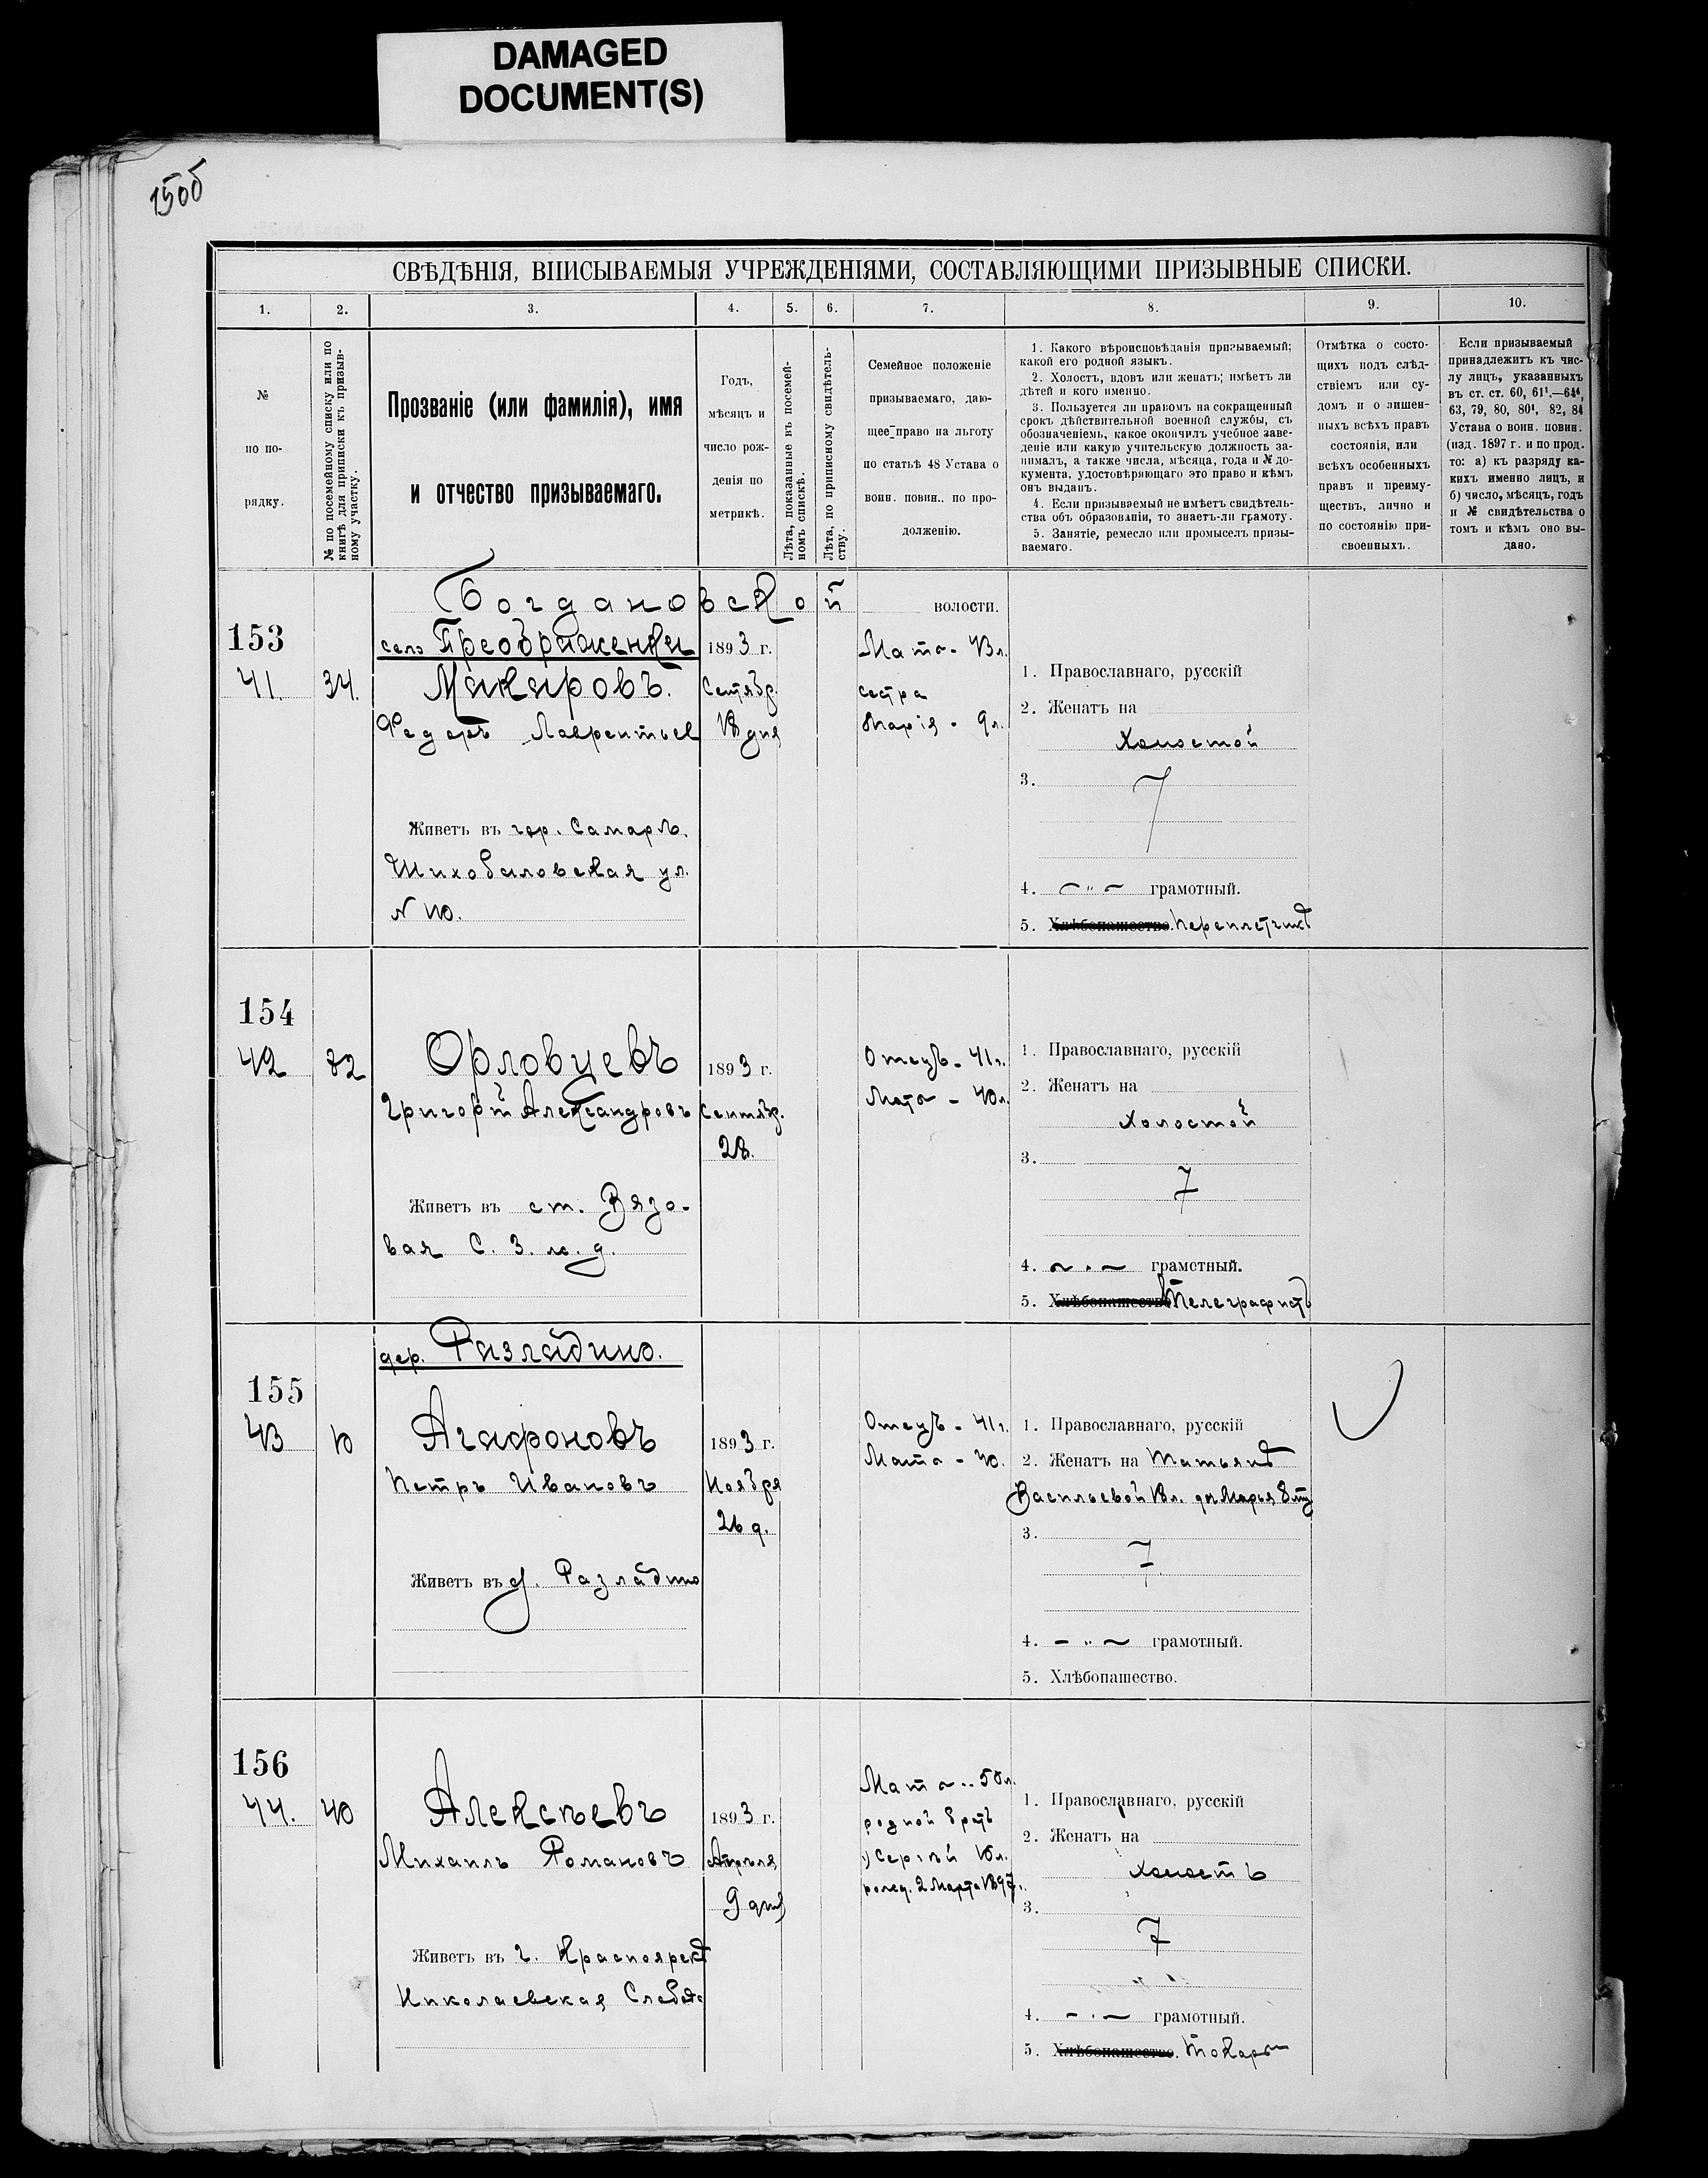 DAMAGED
DOCUMENT(S)
150б
СВѢДѢНІЯ, ВПИСЫВАЕМЫЯ УЧРЕЖДЕНІЯМИ, СОСТАВЛЯЮЩИМИ ПРИЗЫВНЫЕ СПИСКИ.
1. 2. 3. 4. 5. 6. 7. 8. 9. 10.
№
по по-
рядку.
№ по посемейному списку или по
книгѣ для приписки къ призыв-
ному участку.
Прозваніе (или фамилія), имя
и отчество призываемаго.
Годъ,
мѣсяцъ и
число рож-
денія по
метрикѣ.
Лѣта, показанные въ посемей-
номъ спискѣ.
Лѣта, по приписному свидѣтель-
ству.
Семейное положеніе
призываемаго, даю-
щее право на льготу
по статьѣ 48 Устава о
воин. повин., по про-
долженію.
1. Какого вѣроисповѣданія призываемый;
какой его родной языкъ.
2. Холостъ, вдовъ или женатъ; имѣетъ ли
дѣтей и кого именно.
3. Пользуется ли правомъ на сокращенный
срокъ дѣйствительной военной службы, съ
обозначеніемъ, какое окончилъ учебное заве-
деніе или какую учительскую должность за-
нималъ, а также числа, мѣсяца, года и № до-
кумента, удостовѣряющаго это право и кѣмъ
онъ выданъ.
4. Если призываемый не имѣетъ свидѣтель-
ства объ образованіи, то знаетъ-ли грамоту.
5. Занятіе, ремесло или промыселъ призы-
ваемаго.
Отмѣтка о состо-
щихъ подъ слѣд-
ствіемъ или су-
домъ и о лишен-
ныхъ всѣхъ правъ
состоянія, или
всѣхъ особенныхъ
правъ и преиму-
ществъ, лично и
по состоянію при-
своенныхъ.
Если призываемый
принадлежитъ къ чис-
лу лицъ, указанныхъ
въ ст. ст. 60, 61¹.—64⁴,
63, 79, 80, 80¹, 82, 84
Устава о воин. повин.
(изд. 1897 г. и по прод.
то: а) къ разряду ка-
кихъ именно лицъ, и
б) число, мѣсяцъ, годъ
и № свидѣтельства о
томъ и кѣмъ оно вы-
дано.
Богдановской волости.
153
41. 34.
село Преображенки
Макаровъ.
Федоръ Лаврентьев
Живетъ въ гор. Самарѣ.
Шихобаловская ул.
1893 г.
Сентябр.
18 дня
Мать - 43 л.
сестра
Марія - 9 л.
1. Православнаго, русскій
2. Женатъ на
Холостой
3.
4. грамотный.
5. Хлѣбопашество. Переплетчикъ
154
42 82
Орловцевъ
Григорій Александровъ
Живетъ въ ст. Вязо-
вая С. З. ж. д.
1893 г.
Сентябр.
28.
Отецъ - 41 г.
Мать - 40 л.
1. Православнаго, русскій
2. Женатъ на
Холостой
3.
4. грамотный.
5. Хлѣбопашество Телеграфистъ
дер. Разладино.
155
43 10
Агафоновъ
Петръ Ивановъ
Живетъ въ д. Разладино
1893 г.
Ноября
26 д.
Отецъ - 41 г.
Мать - 40.
1. Православнаго, русскій
2. Женатъ на Татьянѣ
Васильевой 18 л. дч Марья
3.
4. грамотный.
5. Хлѣбопашество.
156
44. 40
Алексѣевъ
Михаилъ Романовъ
Живетъ въ г. Красноярскѣ
Николаевская Слобода
1893 г.
Апрѣля
9 дня
Мать - 50 л.
родной братъ
1) Сергѣй 16 л.
рожд. 2 Марта 1897 г.
1. Православнаго, русскій
2. Женатъ на
Холостъ
3.
4. грамотный.
5. Хлѣбопашество. Токарь